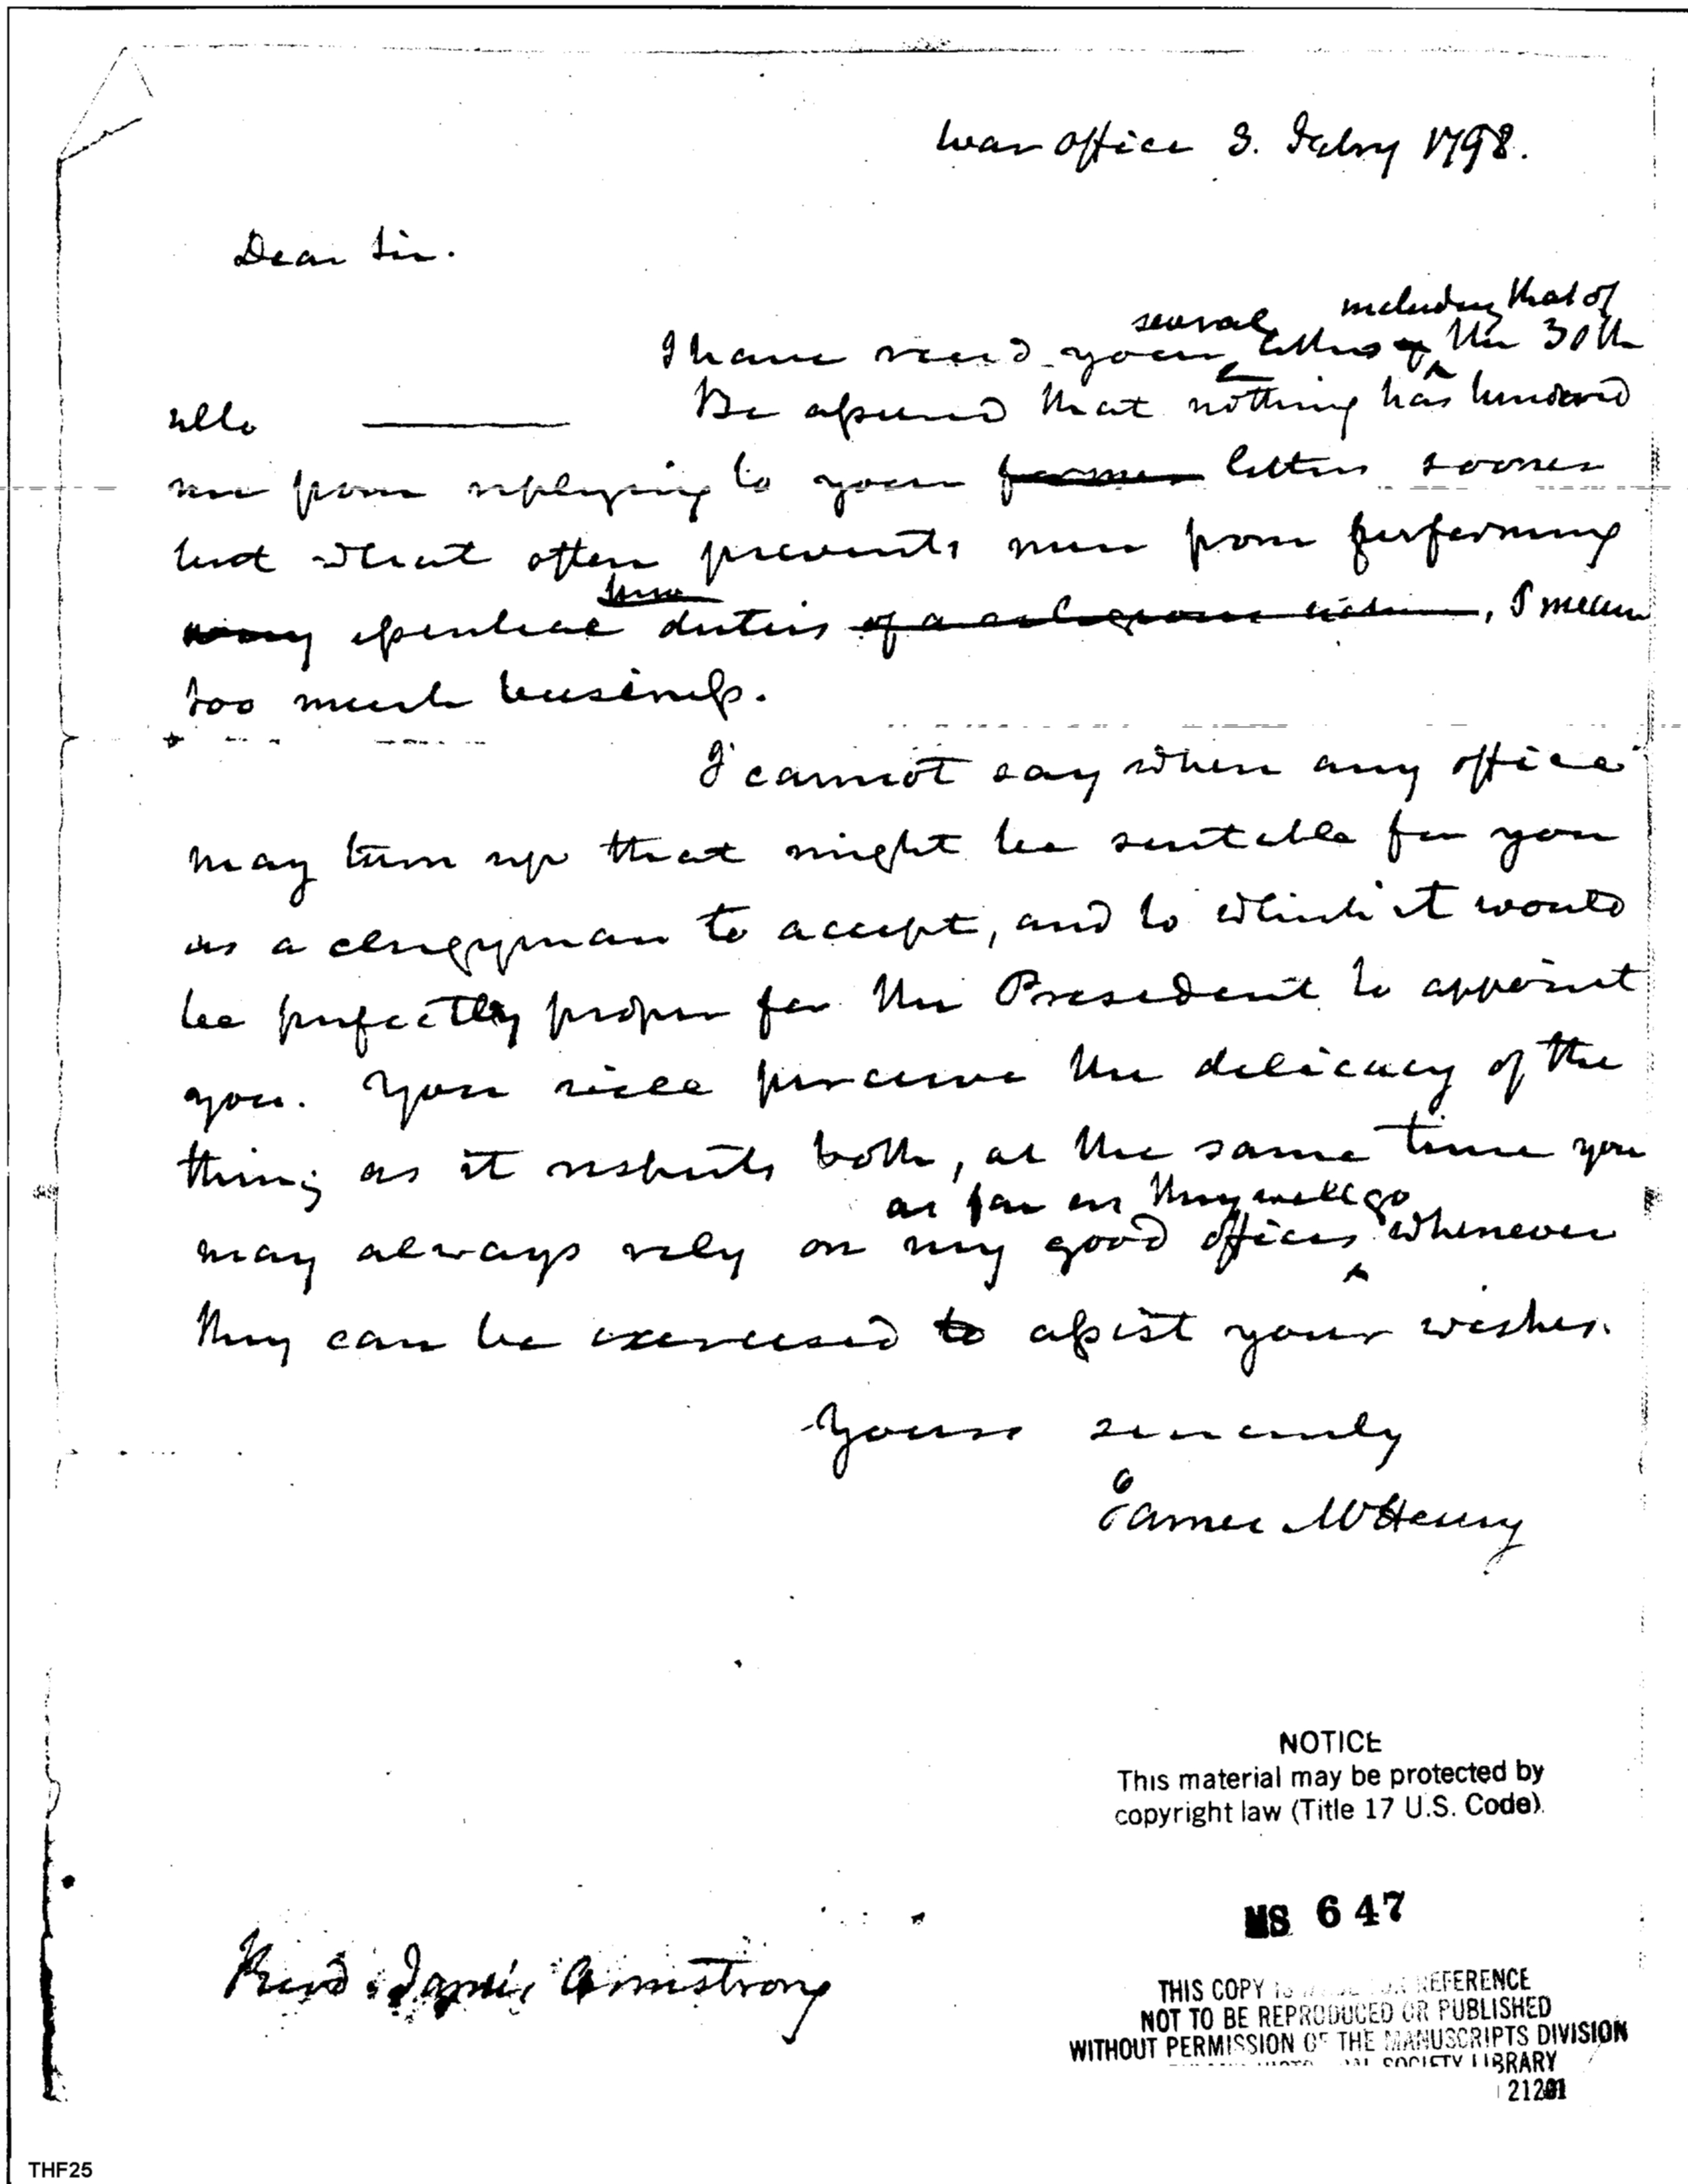 War office 3. Febry 1798.
Dear Sir.
several including that of
I have recd your letters of the 30th
ulto ——— Be assured that nothing has hindered
me from replying to your former letters sooner
but what often prevents men from performing
their
many essential duties of a religious nature, I mean
too much business.
I cannot say when any office
may turn up that might be suitable for you
as a clergyman to accept, and to which it would
be perfectly proper for the President to appoint
you. You will perceive the delicacy of the
thing as it respects both, at the same time you
as far as they will go
may always rely on my good offices whenever
they can be exercised to assist your wishes.
Yours sincerely
James McHenry
NOTICE
This material may be protected by
copyright law (Title 17 U.S. Code).
MS 647
Revd. James Armstrong
THIS COPY IS MADE FOR REFERENCE
NOT TO BE REPRODUCED OR PUBLISHED
WITHOUT PERMISSION OF THE MANUSCRIPTS DIVISION
SOCIETY LIBRARY
21201
THF25